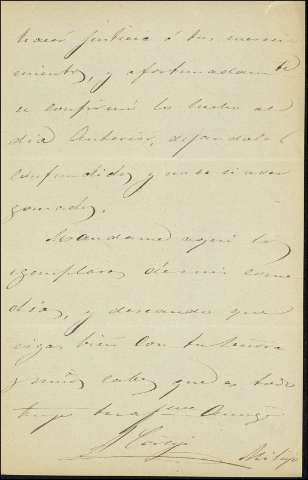 hacer justicia á tus mereci
mientos, y afortunadamente
se confirmó lo hecho el
dia anterior, dejandoles
confundidos y no se si aver
gonzados.
Mandame aqui los
ejemplares de mi come
dia, y deseando que
sigas bien con tu señora
y niños, sabes que es todo
tuyo tu affmo Amigo